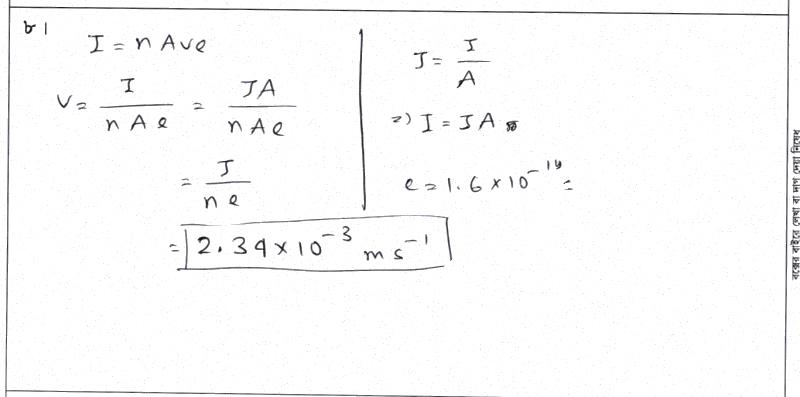 ৮।
I = nAve
v = I/nAe = JA/nAe
= J/ne
= 2.34×10⁻³ ms⁻¹
J = I/A
⇒) I = JA
e = 1.6×10⁻¹⁹
বক্সের বাইরে লেখা বা দাগ দেয়া নিষেধ